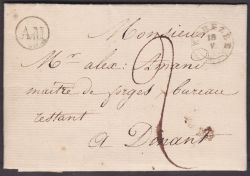 A.M
Monsieur
Mr alex: Amand
maitre de forges bureau
restant
a Dinant
2